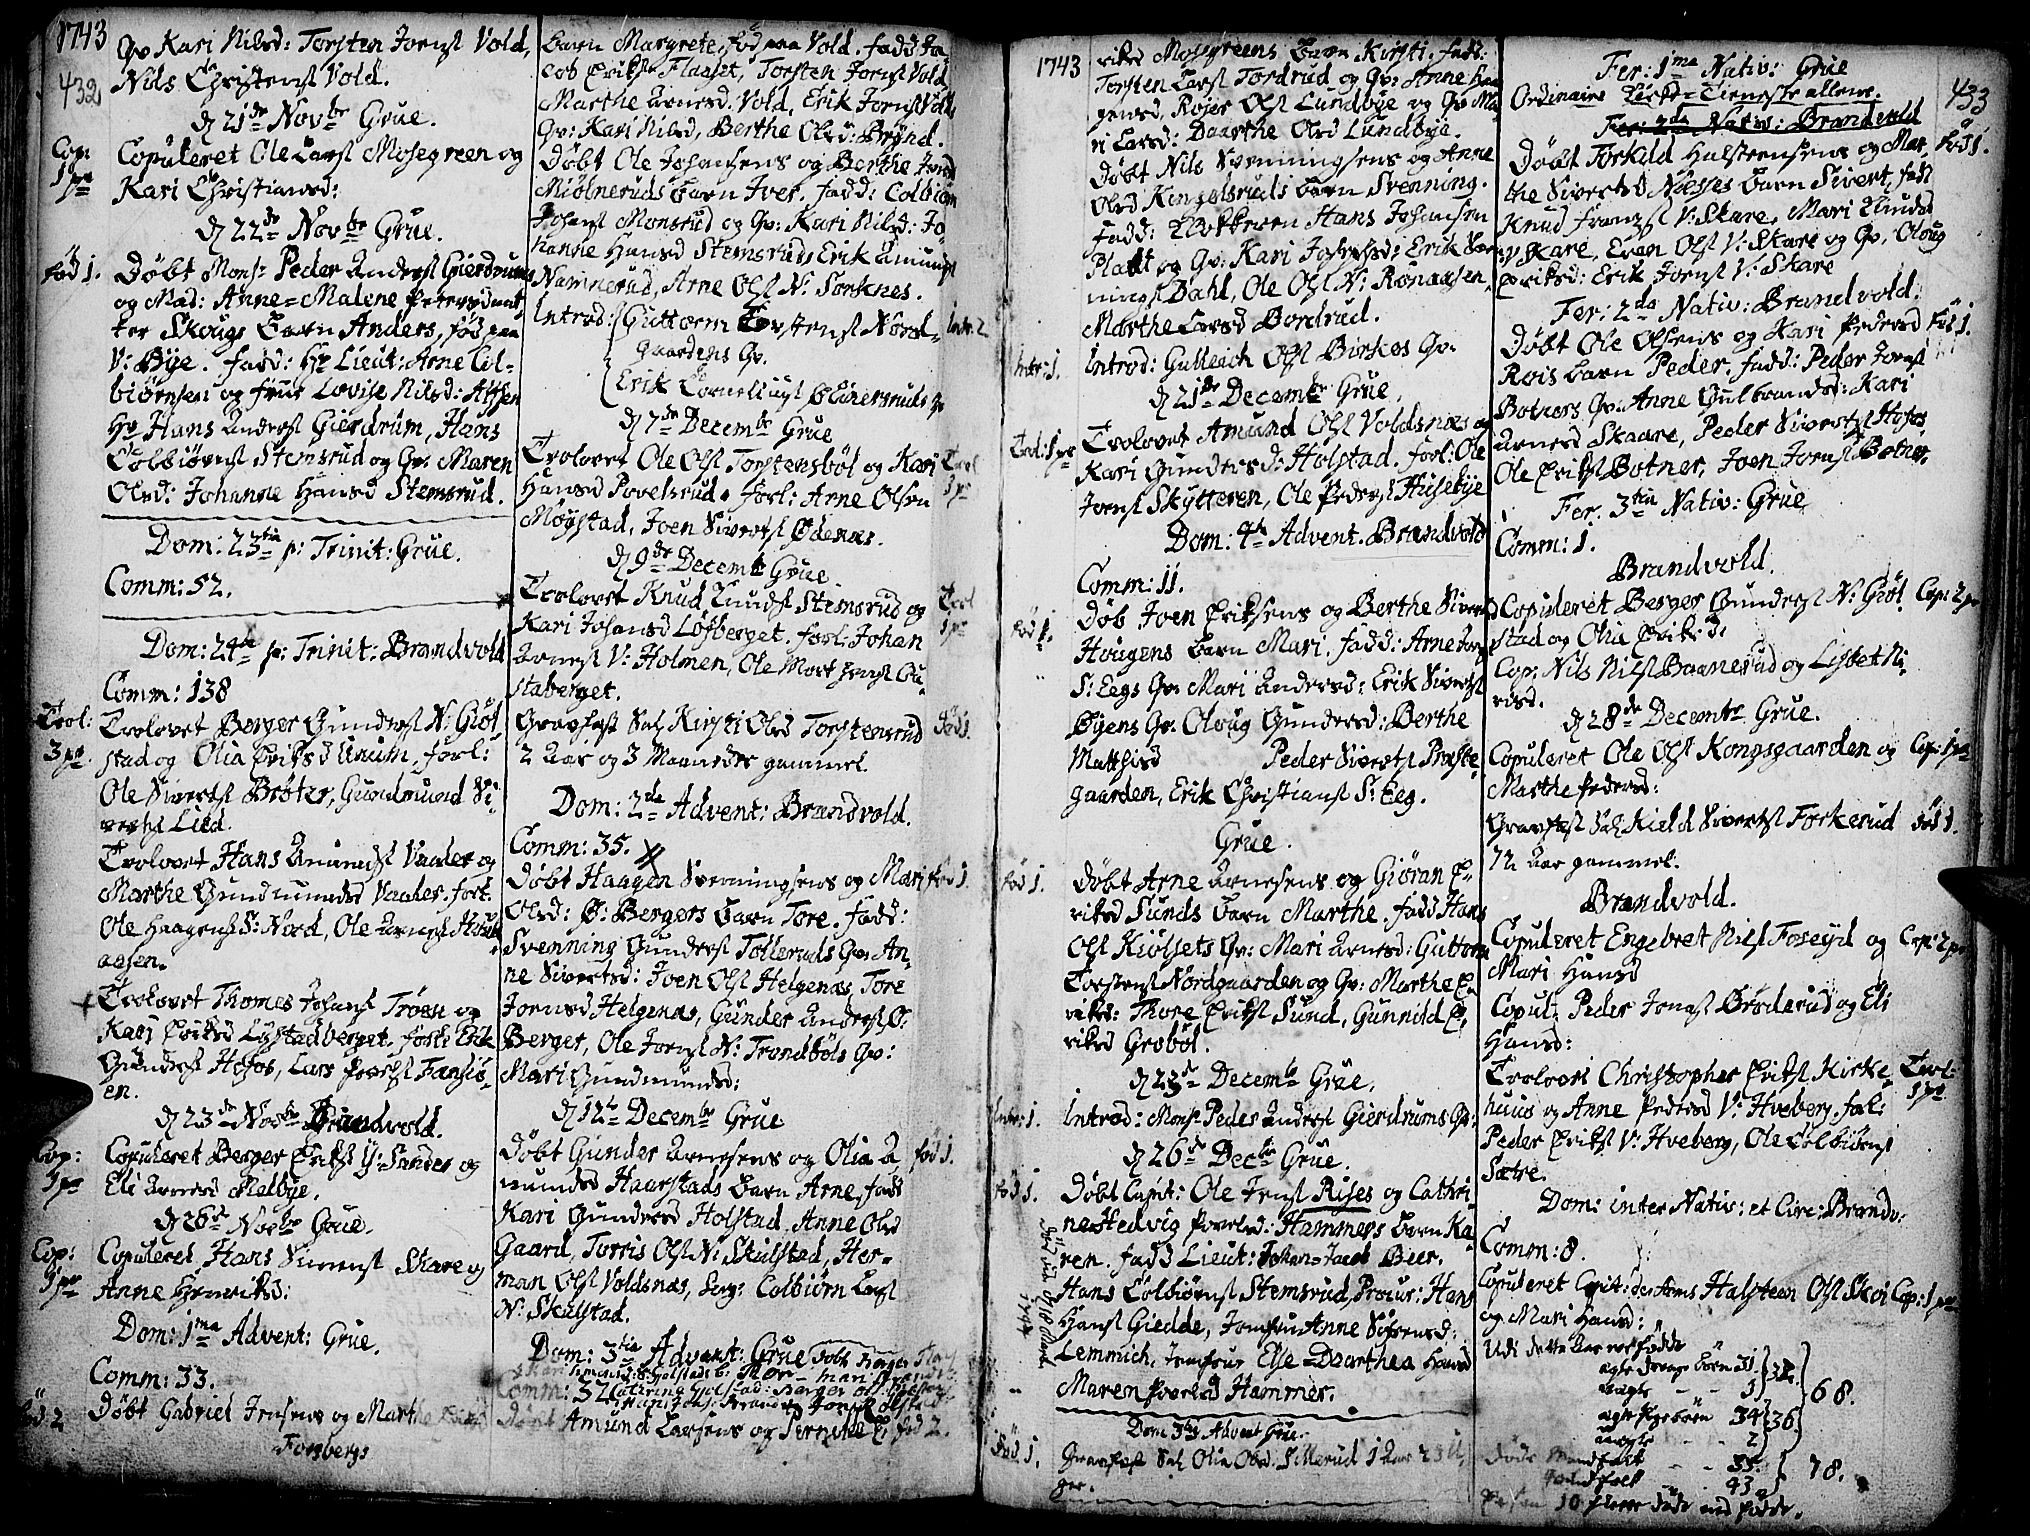 1743
432
Qv: Kari Nilsd: Torsten Jornsl Vold,
Nils Christensl Vold.
d 21de Novbr Grue.
Cop: 1 pr
Copuleret Ole Larsl Mosegreen og
Kari Christiansd:
d 22de Novbr Grue.
fød 1.
Døbt Monsr Peder Andersl Gierdrums
og Mad: Anne-Malene
Skougs barn Anders, fød paa
V: Bye. fadd: Hr Lieut: Arne Col-
biørnsen og frue Lovise Nilsd:
Hr Hans Andersl Gierdrum, Hans
Colbiørnsl Stemsrud og Qv: Maren
Olsd: Johanne Hansd Stemsrud.
Dom: 23tia p: Trinit: Grue.
Comm: 52.
Dom: 24ta p: Trinit: Brandvold
Comm: 138
Trol: 3 pr.
Trolovet Berger Gundersl N: Giøl
stad og Olia Eriksd Unum, forl:
Ole Sivertsl Brøter, Gundmund Si-
vertsl Lied.
Trolovet Hans Amundsl Vaaler og
Marthe Gundmundsd Vaaler. forl.
Ole Haagensl S: Nord, Ole Arnesl
aasen.
Trolovet Thomes Johansl Trøen og
Kari Eriksd Lystadberget. forl: Erik
Gundersl Hofos, Lars Povelsl Fansiø-
en.
d 23de Novbr Brandvold.
Cop: 1 pr
Copuleret Berger Eriksl Y: Sander og
Eli Arnesd Melbye.
d 26de Novbr Grue.
Cop: 1 pr
Copuleret Hans Simensl Skare og
Anne Henriksd:
Dom: 1ma Advent: Grue.
Comm: 33.
fød 2
Døbt Gabriel Jensens og Marthe
Forsbergs
barn Margrete, fød paa Vold. fadd Ja-
cob Eriksl Flaaset, Torsten Jornsl Vold
Marthe Arnesd: Vold, Erik Jornsl Volds
Qv: Kari Nilsd, Berthe Olsd: Brynd.
Døbt Ole Johansens og Berthe
Miølneruds barn Iver. fadd: Colbiørn
Johansl Monsrud og Qv: Kari Nilsd: Jo-
hanne Hansd Stemsrud, Erik Amundsl
Namnerud, Arne Olsl N: Torknes.
Introd: Guttorm Torstensl Nord- Intr: 2
gaardens Qv.
Erik Corneliusl Ølimersruds Qv
d 7de Decembr Grue
Trolovet Ole Olsl Torstensbøl og Kari Trol 1 pr
Hansd Povelsrud. forl: Arne Olsen
Møystad, Joen Sivertsl Ødenæs.
d 9de Decembr Grue.
Trolovet Knud Knudsl Stemsrud og Trol 1 pr
Kari Johansd Løfberget. forl: Johan
Arnesl V: Holmen, Ole Mort
staberget.
Gravfæst Sal Kirsti Olsd Torstensrud død 1.
2 Aar og 3 Maaneder gammel.
Dom: 2da Advent: Brandvold.
Comm: 35.
Døbt Haagen Svenningsens og Mari fød 1.
Olsd: Ø: Bergers barn Tore. fadd:
Svenning Gundersl Tolleruds Qv: An-
ne Sivertsd: Joen Olsl Helgenæs, Tore
Jornsd Helgenæs, Gunder Andersl Ø:
Berger, Ole Jornsl N: Trondbøls Qv:
Mari Gundmundsd:
d 12te Decembr Grue
Døbt Gunder Arnesens og Olia A fød 1.
mundsd Haarstads barn Arne, fadd
Kari Gundersd Holstad, Anne Olsd
Gaard, Torris Olsl N: Skulstad, Her-
man Olsl Voldsnæs, Serg: Colbiørn Larsl
N: Skulstad.
Dom: 3tia Advent: Grue
Comm: 32
Døbt Amund Larsens og Pernille E fød 2.
1743
riksd Mosegreens barn Kirsti. fadd:
Torsten Larsl Tordrud og Qv: Anne Haa
gensd, Rojer Olsl Lundbye og Qv Ma
ri Larsd: Daarthe Olsd Lundbye.
Døbt Nils Svenningsens og Anne
Olsd Kingelsruds barn Svenning.
fadd: Klokkeren Hans Johansen
Platt og Qv: Kari Josephsd: Erik Sven-
ningsl Dahl, Ole Olsl N: Ronaasen,
Marthe Larsd Bordrud.
Intr: 1.
Introd: Gulleich Olsl Birkes Qv.
d 21de Decembr Grue.
Trol: 1 pr
Trolovet Amund Olsl Voldsnæs og
Kari Gundersd: Holstad. forl: Ole
Jornsl Skytteren, Ole Pedersl Husebye
Dom: 4ta Advent. Brandvold
Comm: 11.
fød 1.
Døb Joen Eriksens og Berthe Siverts
Hougens barn Mari. fadd: Arne
S: Eegs Qv: Mari Andersd: Erik Sivertsl
Øyens Qv. Oloug Gundersd: Berthe
Matthisd Peder Sivertsl Præste-
gaarden, Erik Christiansl S: Eeg.
Grue.
fød 1.
Døbt Arne Arnesens og Giøran E-
riksd Sunds barn Marthe. fadd Hans
Olsl Kiølsets Qv: Mari Arnesd: Guttorm
Torstensl Nordgaarden og Qv: Marthe E-
riksd: Thore Eriksl Sund, Gunnild E-
riksd Grobøl.
d 23de Decembr Grue.
Intr: 1.
Introd: Monsr Peder Andersl Gierdrums Qv:
d 26de Decbr Grue.
fød 1.
Døbt Capit: Ole Jensl Rises og Cathri-
ne-Hedvig Povelsd: Hammers barn Ka-
ren. fadd Lieut: Johan-Jacob Beer.
Hans Colbiørnsl Stemsrud, Procur: Hans
Hansl Giedde, Jomfru Anne Sørensd:
Lemmich, Jomfrue Else-Daarthea Hansd
Maren Povelsd Hammer.
Dom 3tia Advent Grue.
død 1.
Gravfæst Sal Olia Olsd: 1 Aar 23 U-
ger.
433
Fer: 1ma Nativ: Grue
Ordinaire Tieneste allene.
Fer: 2da Nativ: Brandvold
Døbt Torkild Halsteensens og Mar- fød 1.
the Sivertsd Næsses barn Sivert, fadd
Knud Franzsl V: Skare, Mari Knudsd
V: Skare, Even Olsl V: Skare og Qv. Oloug
Eriksd: Erik Jornsl V: Skare
Fer: 2da Nativ: Brandvold.
Døbt Ole Olsens og Kari Pedersd fød 1.
Rois barn Peder. fadd: Peder Jornsl
Botners Qv: Anne Gulbrandsd: Kari
Arnesd Skaare, Peder Sivertsl Hofos,
Ole Eriksl Botner, Joen Jornsl Botner.
Fer. 3tia Nativ: Grue
Comm: 1.
Brandvold.
Copuleret Berger Gundersl N: Giøl Cop: 2 pr
stad og Olia Eriksd:
Cop: Nils Nilsl Baanerud og Lisbet Ni-
elsd.
d 28de Decembr Grue.
Copuleret Ole Olsl Kongsgaarden og Cop: 1 pr
Marthe Pedersd:
Gravfæst Sal Kield Sivertsl Forkerud død 1.
72 Aar gammel.
Brandvold.
Copuleret Engebret Nilsl Foseyd og Cop: 2 pr
Mari Hansd
Copul: Peder Jonasl Brøderud og Eli
Hansd:
Trolovet Christopher Eriksl Kirke- Trol: 1 pr
huus og Anne Pedersd V: Hveberg. forl:
Peder Eriksl V: Hveberg, Ole Colbiørnsl
Sætre.
Dom: inter Nativ: et Circ: Brandv:
Comm: 8.
Copuleret Capit: des Arms Halsteen Olsl Skøi Cop: 1 pr
og Mari Hansd:
Udi dette Aar ere fødde
ægte drenge børn 31
uægte - - 1 } 32.
ægte Pige børn 34
uægte - - 2 } 36. } 68.
døde Mandfolk - - 35.
qvindfolk - - 43 } 78.
Er saa 10 fleere døde end fødde.